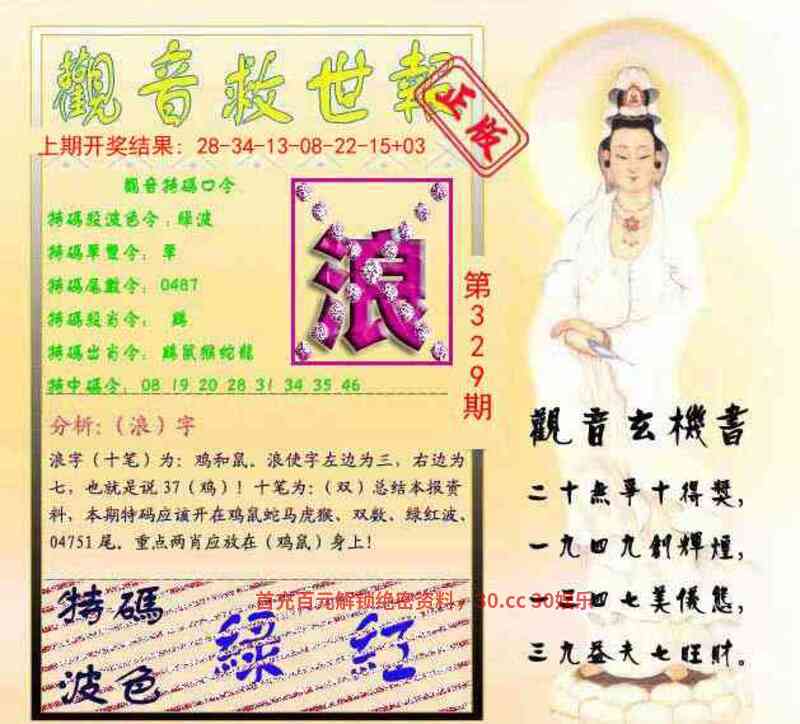 觀音救世報
正版
上期开奖结果：28-34-13-08-22-15+03
觀音特碼口令
特碼段波色令：綠波
特碼單雙令：單
特碼尾數令：0487
特碼段肖令：鷄
特碼出肖令：鷄鼠猴蛇龍
特中碼令：08 19 20 28 31 34 35 46
浪
第329期
分析：（浪）字
浪字（十笔）为：鸡和鼠。浪使字左边为三，右边为
七，也就是说37（鸡）！十笔为：（双）总结本报资
料，本期特码应该开在鸡鼠蛇马虎猴、双数。绿红波、
04751尾。重点两肖应放在（鸡鼠）身上！
特碼
波色
綠 紅
首充百元解锁绝密资料，30.cc 30娱乐
觀音玄機書
二十無單十得獎，
一九四九創輝煌，
四七美儀態，
三九益夫七旺財。